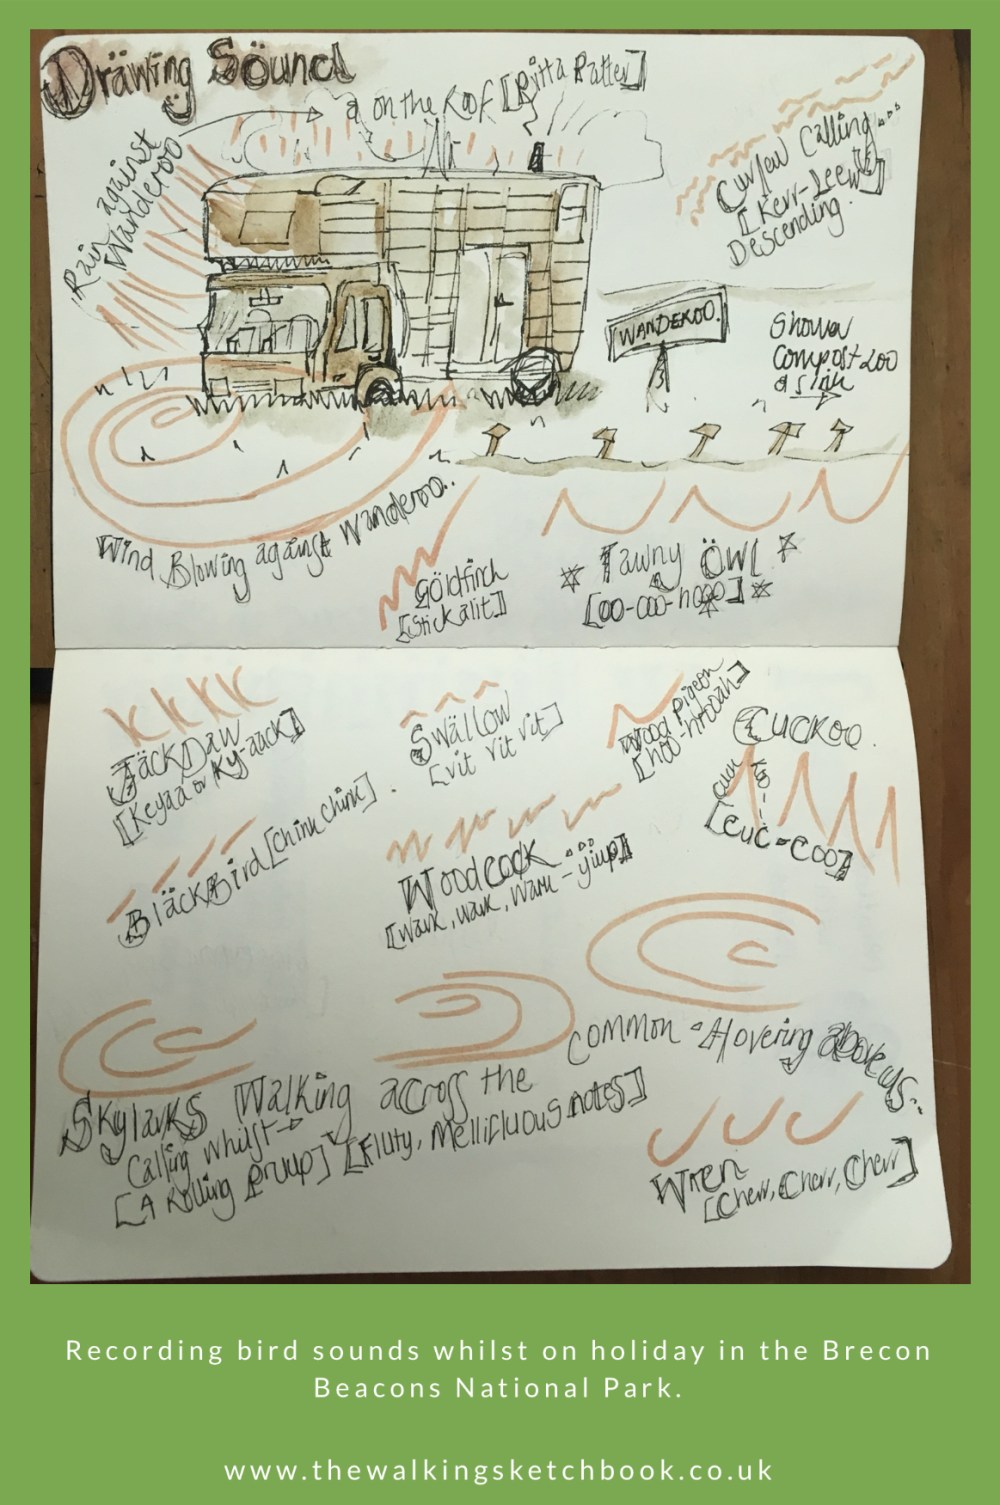 Dräwing Söund
& on the Roof [Pitta Patter]
Rain against
Wanderoo
Curlew Calling...
[Kerr-Leew]
Descending.
WANDEROO.
Shower
Compost Loo
& sink
Wind Blowing against Wanderoo..
Göldfinch
[Stickalit]
Tawny ÖWL
[oo-ooo-hooo]
JäckDaw
[Keyaa or Ky-aack]
Swällow
[vit vit vit]
Wood Pigeon
[hoo-hrooah]
Cuckoo.
[Cuc-coo]
BläckBird [Chink Chink].
Woodcock...
[Wark, Wark, Wark-yiup]
Skylarks Walking across the Common & Hovering above us..
Calling whilst
[A Rolling Pruup] [Fluty, Mellifluous notes]
Wren
[Cherr, Cherr, Cherr]
Recording bird sounds whilst on holiday in the Brecon
Beacons National Park.
www.thewalkingsketchbook.co.uk